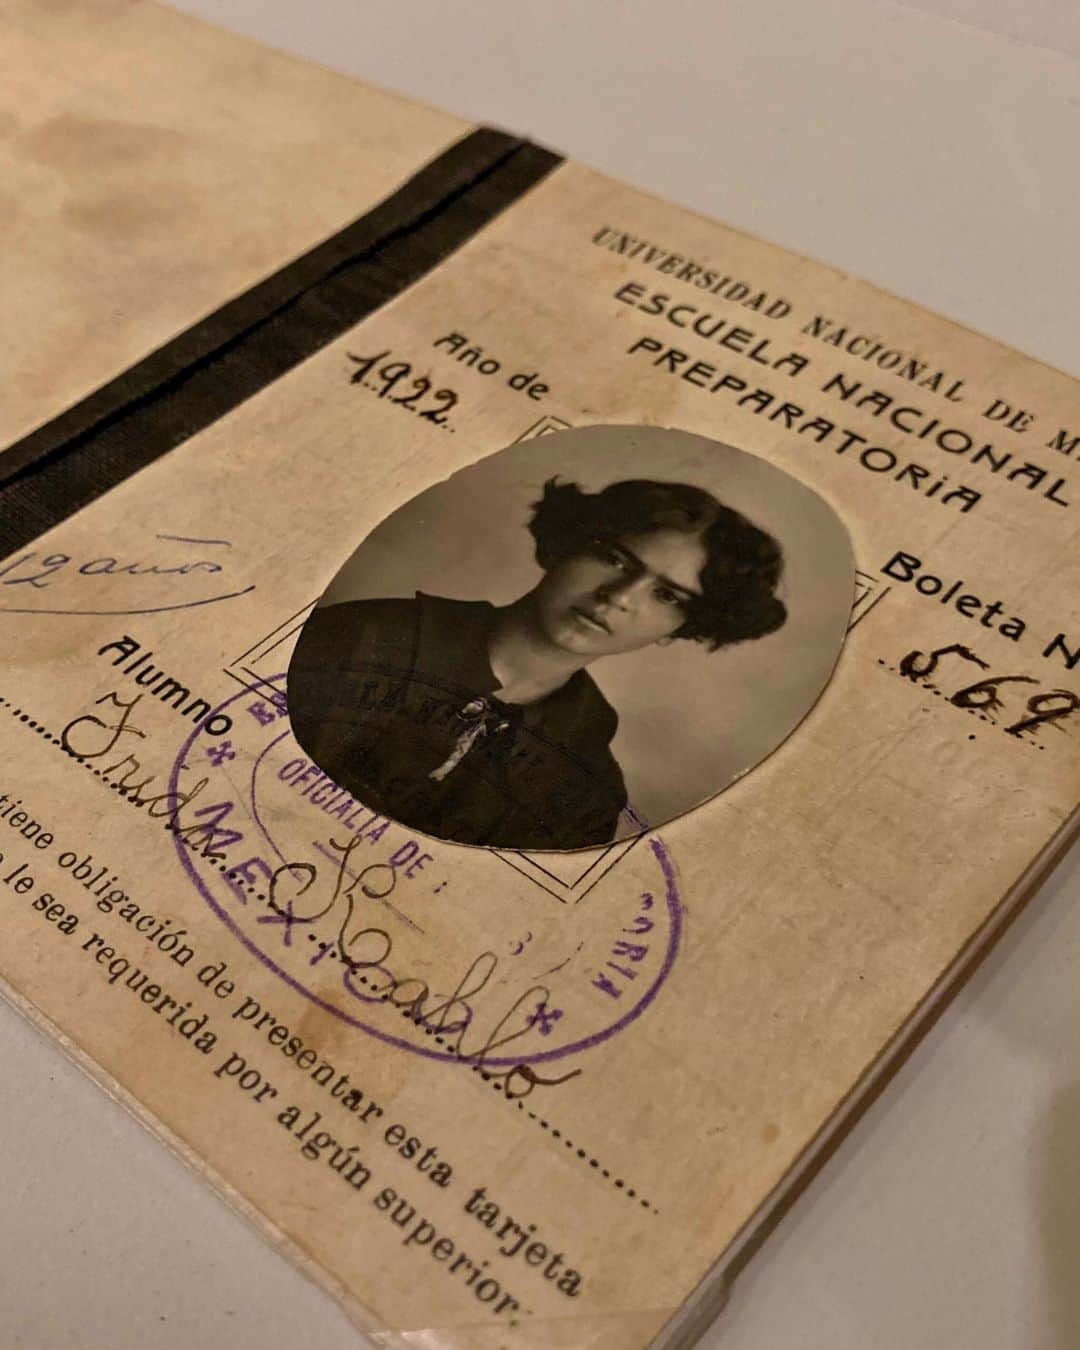 UNIVERSIDAD NACIONAL DE
ESCUELA NACIONAL
PREPARATORIA
Año de
1922
Boleta N
569
12 años
Alumno
Frida Kahlo
OFICIALIA DE
MEXICO
tiene obligación de presentar esta tarjeta
le sea requerida por algún superior.